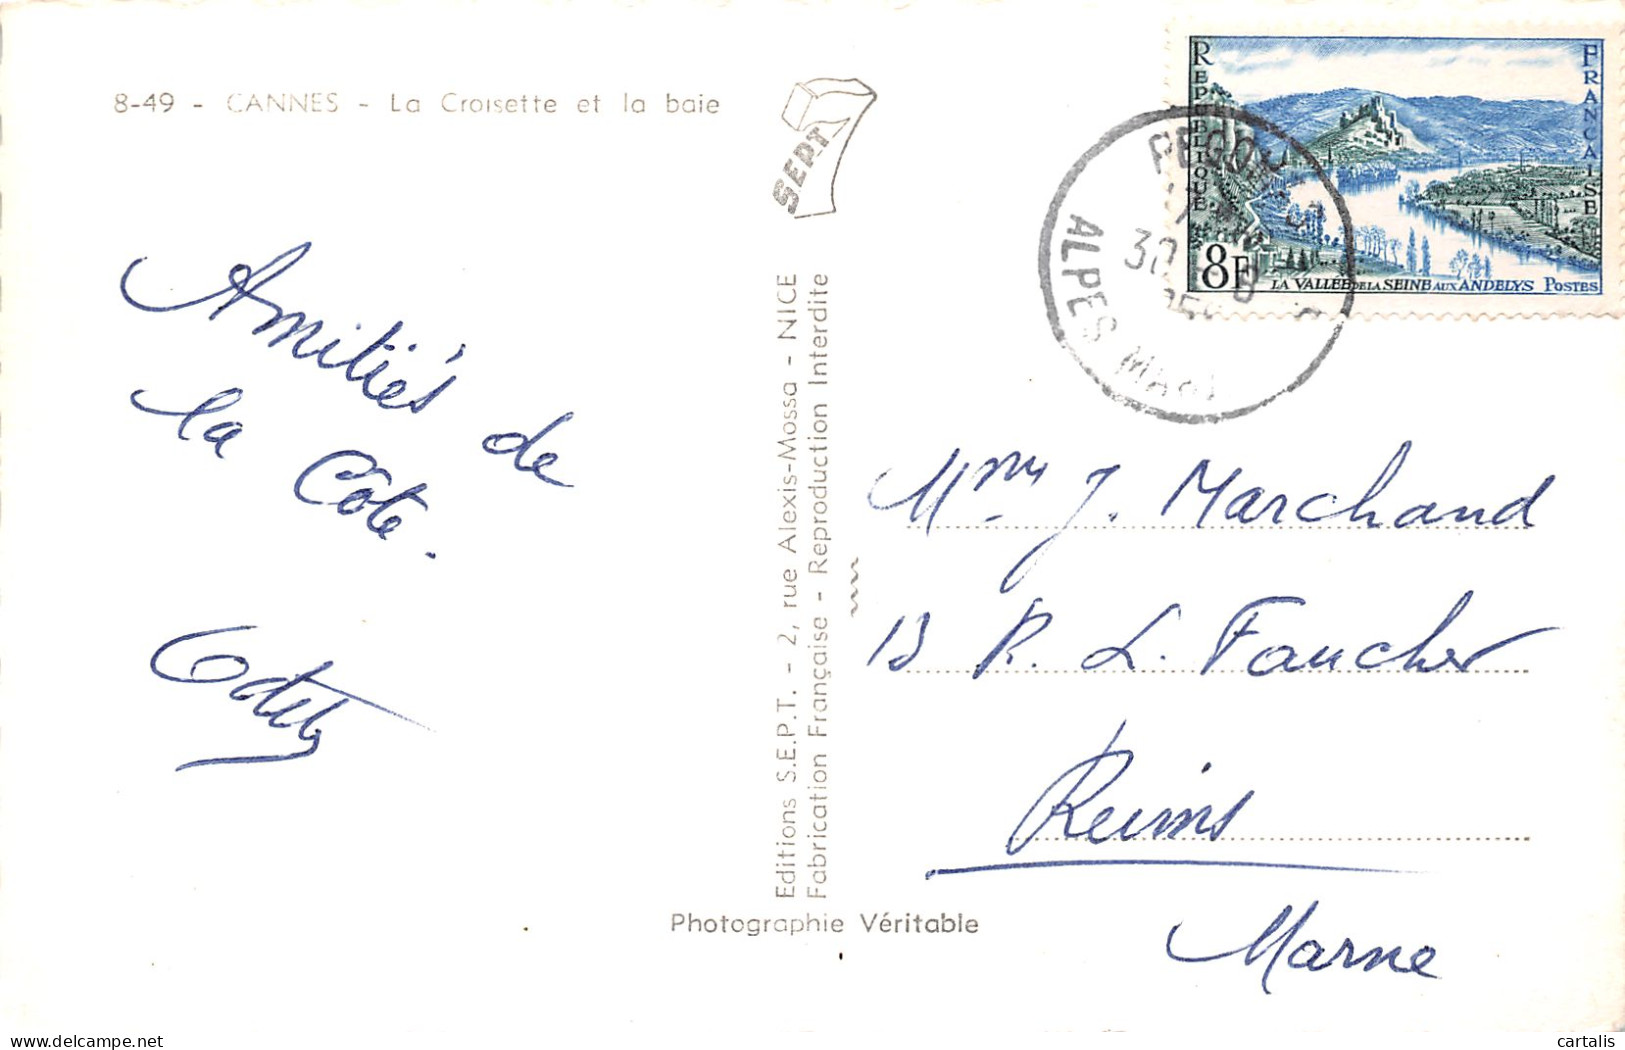 8-49 - CANNES - La Croisette et la baie
SEPT
Amitiés de
la Côte.
Editions S.E.P.T. - 2, rue Alexis-Mossa - NICE
Fabrication Française - Reproduction Interdite
Photographie Véritable
REPUBLIQUE
FRANCAISE
8F
LA VALLEE DE LA SEINE AUX ANDELYS POSTES
PEGOMAS
30
ALPES MARI
J. Marchand
13 R. L. Faucher
Reims
Marne
cartalis